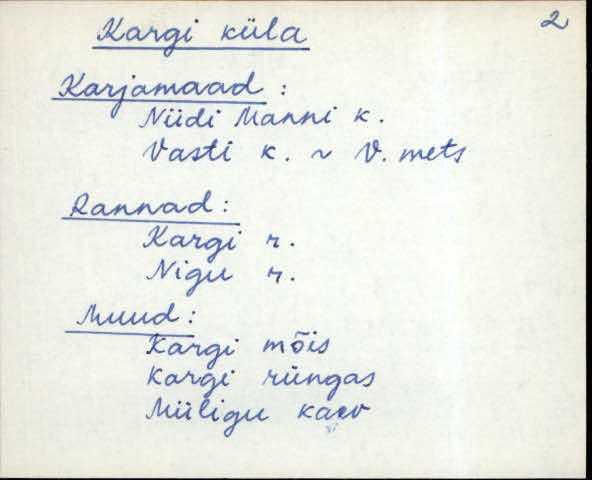 Kargi küla 2
Karjamaad :
Niidi Manni k.
Vasti k. ~ V. mets
Rannad :
Kargi r.
Nigu r.
Muud :
Kargi mõis
Kargi rüngas
Müligu kaev